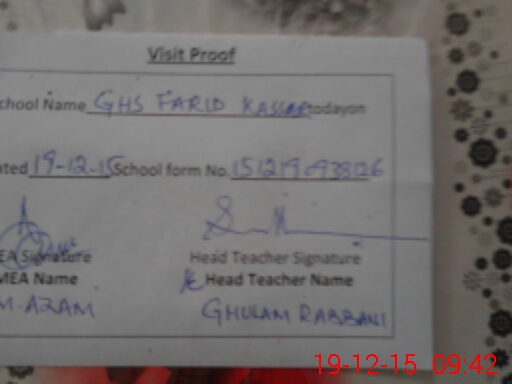 Visit Proof
chool Name GHS FARID KASSAR todayon
ated 19-12-15 School form No. 151219093826
EA Signature Head Teacher Signature
MEA Name Head Teacher Name
M. AZAM GHULAM RABBANI
19-12-15 09:42